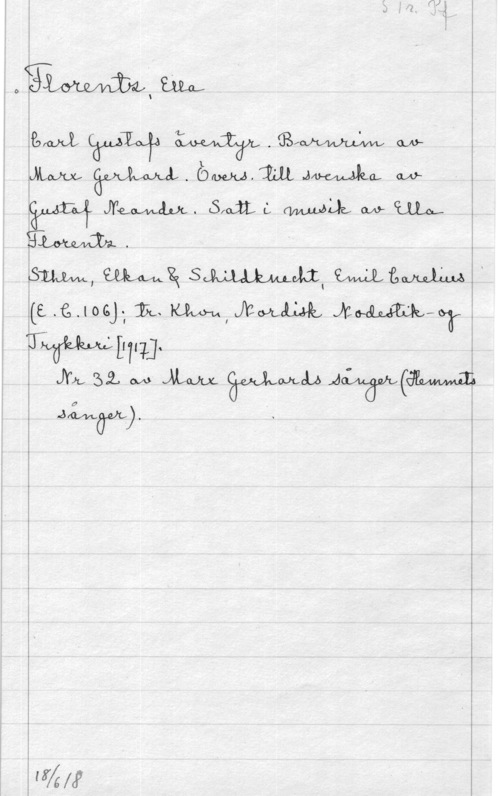 S 1 r. Pf
Florentz, Ella
Carl Gustafs äventyr. Barnrim av
Marx Gerhard. Övers. till svenska av
Gustaf Neander. Satt i musik av Ella
Florentz.
Sthlm, Elkan & Schildknecht, Emil Carelius
(E.C.106); tr. Khvn, Nordisk Nodestik- og
Trykkeri [1917].
Nr 32 av Marx Gerhards sånger (Hemmets
sånger).
18/6 18